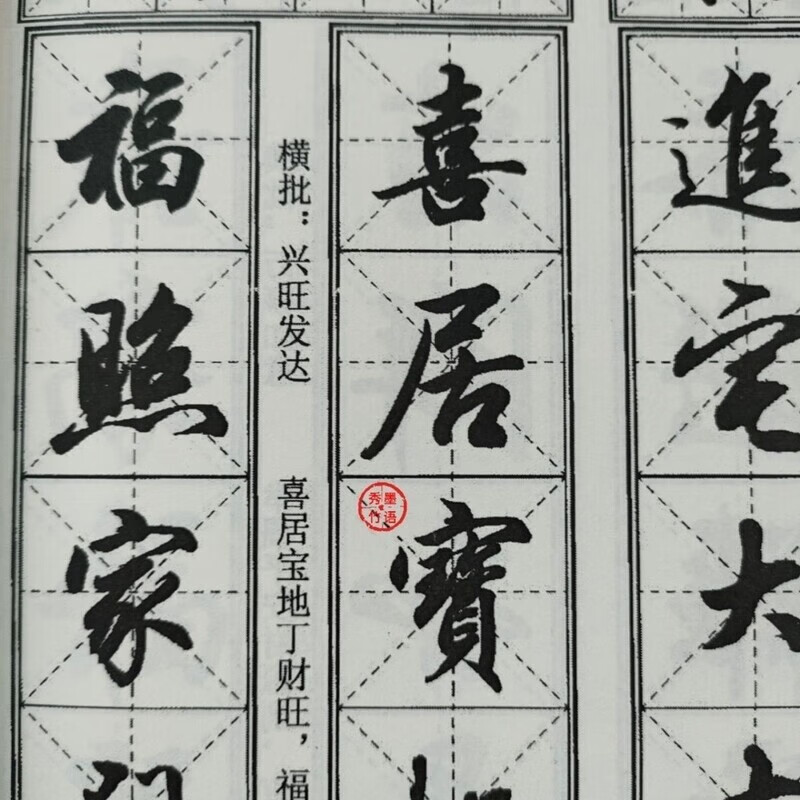 進宅大
喜居寶
横批：兴旺发达
喜居宝地丁财旺，福
福照家
秀墨
竹语